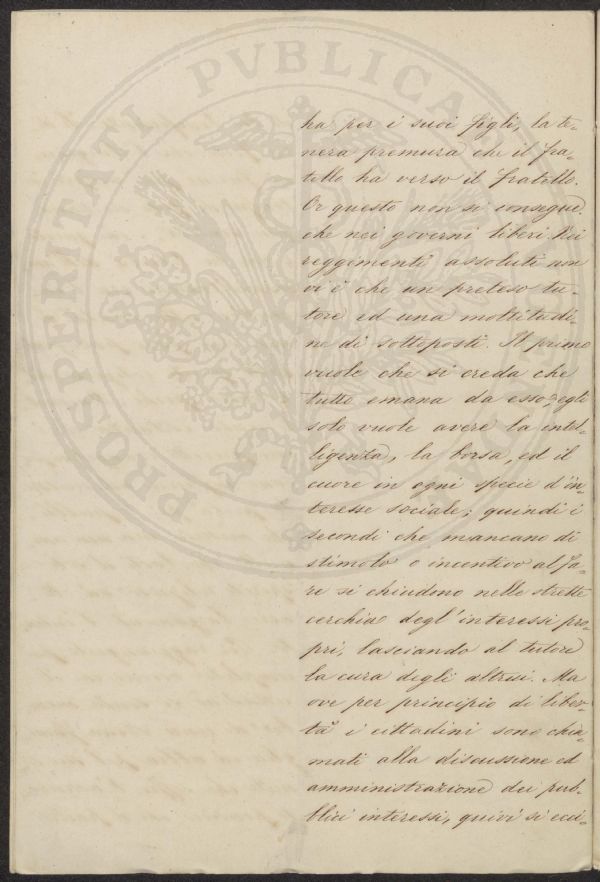 ha per i suoi figli, la te-
nera premura che il fra-
tello ha verso il fratello.
Or questo non si consegue
che nei governi liberi. Nei
reggimenti assoluti non
vi è che un preteso tu-
tore ed una moltitudi-
ne di sottoposti. Il primo
vuole che si creda che
tutto emana da esso, egli
solo vuole avere la intel-
ligenza, la borsa, ed il
cuore in ogni specie d'in-
teresse sociale; quindi i
secondi che mancano di
stimolo o incentivo al fa-
re si chiudono nelle strette
cerchia degl'interessi pro-
pri, lasciando al tutore
la cura degli altrui. Ma
ove per principio di liber-
tà i cittadini sono chia-
mati alla discussione ed
amministrazione dei pub-
blici interessi, quivi si ecci-
PROSPERITATI PVBLICAE